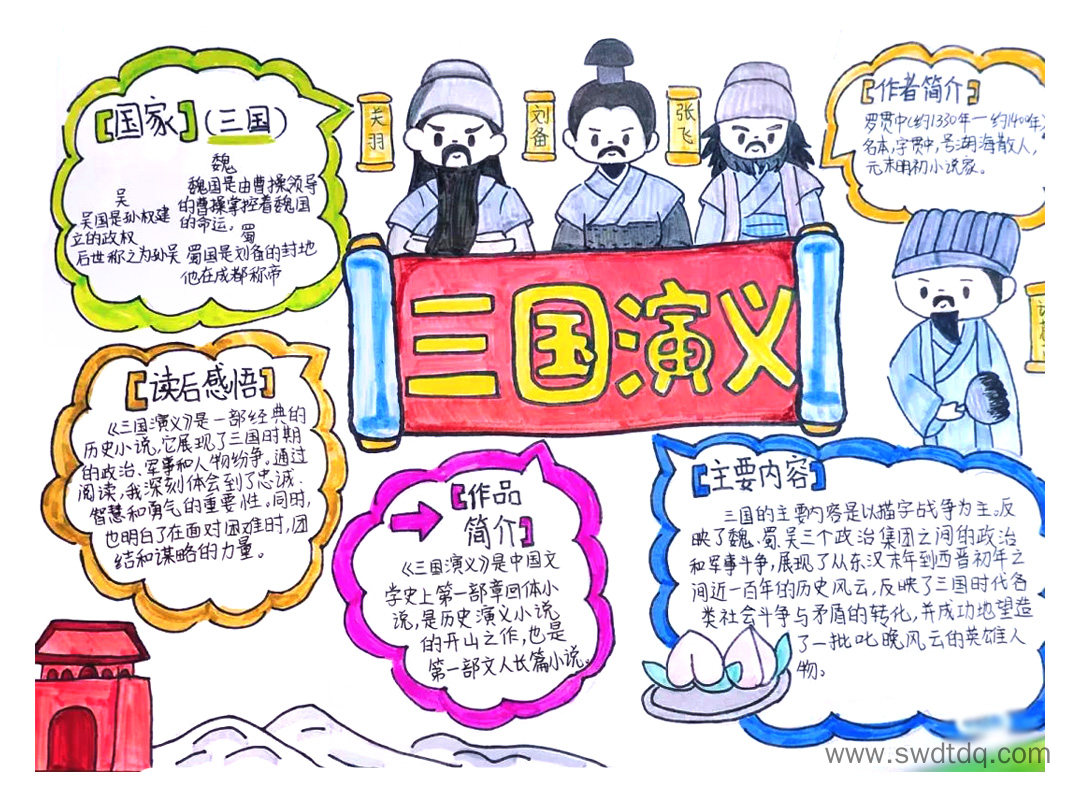 【国家】(三国)
魏
魏国是由曹操领导
的曹操掌控着魏国
的命运。
吴
吴国是孙权建
立的政权
后世称之为孙吴
蜀
蜀国是刘备的封地
他在成都称帝
关羽
刘备
张飞
【作者简介】
罗贯中(约1330年一约1400年)
名本,字贯中,号湖海散人,
元末明初小说家。
三国演义
【读后感悟】
《三国演义》是一部经典的
历史小说,它展现了三国时期
的政治、军事和人物纷争。通过
阅读,我深刻体会到了忠诚.
智慧和勇气的重要性。同时,
也明白了在面对困难时,团
结和谋略的力量。
【作品
简介】
《三国演义》是中国文
学史上第一部章回体小
说,是历史演义小说
的开山之作,也是
第一部文人长篇小说。
【主要内容】
三国的主要内容是以描字战争为主。反
映了魏、蜀、吴三个政治集团之间的政治
和军事斗争,展现了从东汉末年到西晋初年之
间近一百年的历史风云,反映了三国时代各
类社会斗争与矛盾的转化,并成功地塑造
了一批叱晚风云的英雄人
物。
www.swdtdq.com